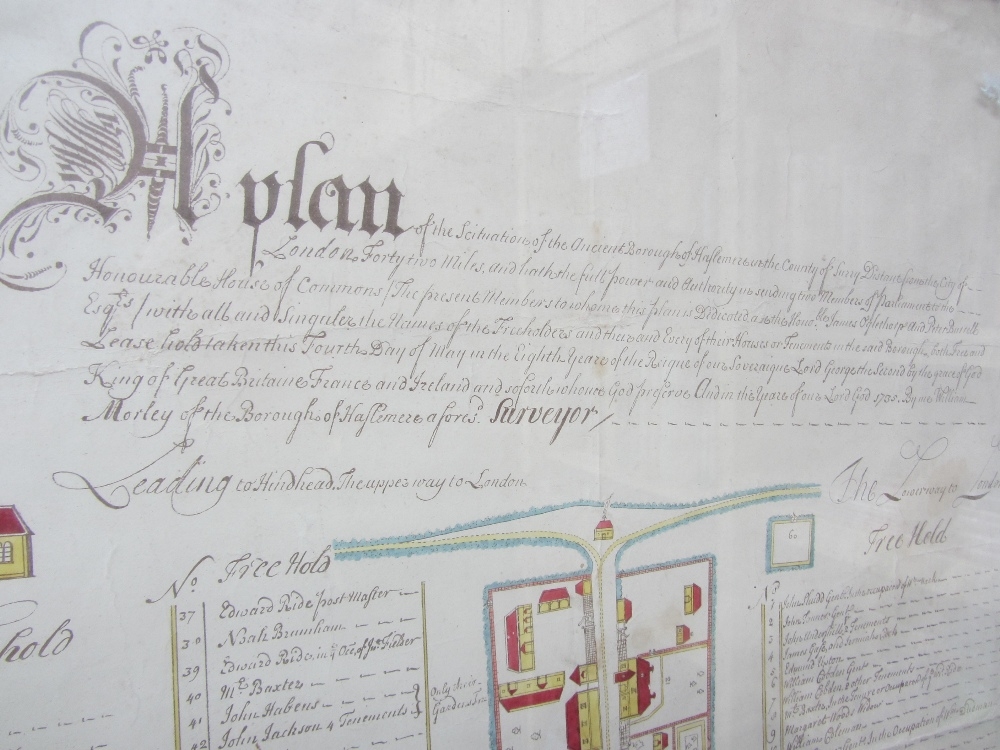 A plan of the Scituation of the Ancient Borough of Haslemere in the County of Surry Distant from the City of
London Forty two Miles, and hath the full power and Authority in sending two Members of Parliament to
Honourable House of Commons / The present Members to whome this plan is Dedicated are the Honoble James Oglethorpe And Peter Burrell
Esqrs / with all and Singuler the Names of the Freeholders and their and Every of their Houses or Tenements in the said Borough, both Free and
Lease hold taken this Fourth Day of May in the Eighth Yeare of the Reigne of our Soveraigne Lord George the Second by the grace of God
King of Great Britaine France and Ireland and soforth whome God preserve And in the Yeare of our Lord God 1735. By me William
Morley of the Borough of Haslemere aforesd. Surveyor /
Leading to Hindhead. The upper way to London
The Lower way to London
hold
No. Free Hold
37 Edward Ride post Master
38 Noah Bramham
39 Edward Ride, in ye Occ. of Jno. Fielder
40 Mr. Baxter
41 John Habens
42 John Jackson 4 Tenements
Only their
Gardens
60
Free Hold
No.
1
2
3
4 James Goff
5 Edmund Upton
6 William Cobden Gent
William Cobden 2 other Tenements
Margaret Wood Widow
William Coleman
In the Occupation of